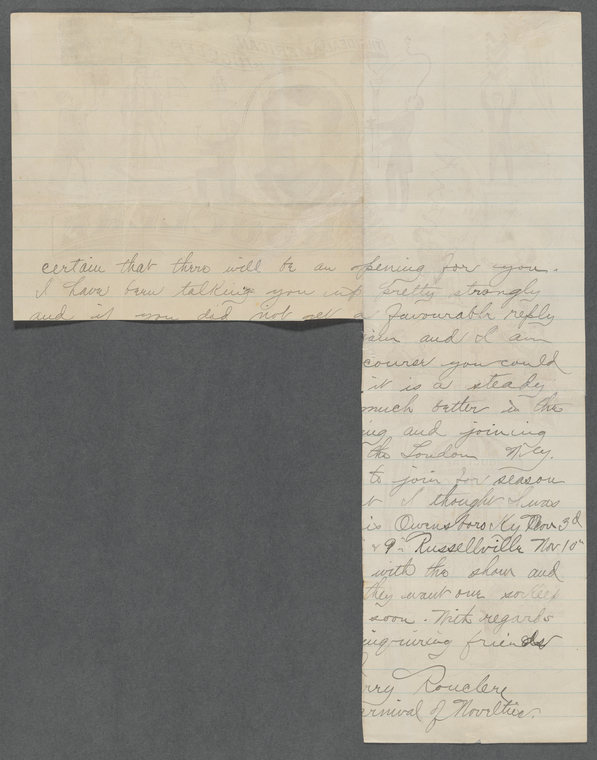 certain that there will be an opening for you.
I have been talking you up pretty strongly
and if you did not get a favourable reply
and I am
course you could
it is a steady
much better in the
ing and joining
the London
to join for season
I thought I was
is Owensboro Ky Nov 3d
& 9" Russellville Nov 10"
with the show and
they want our
soon. With regards
inquiring friends
rry Rouclere
rnival of Novelties.